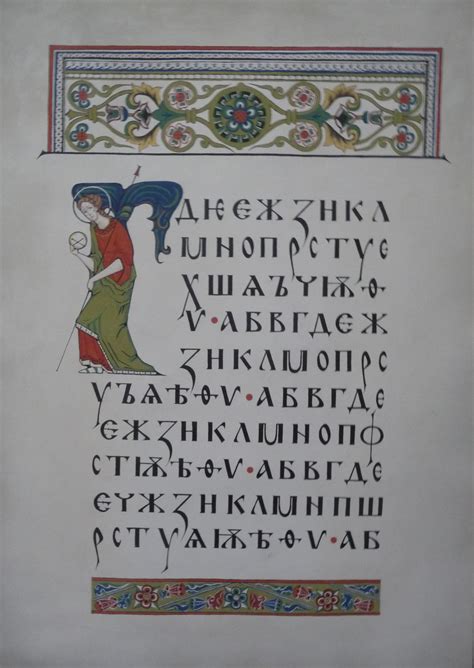 Г ДѤЄЖЗНКЛ
МНОПРСТУЄ
ХШѦЪЧѬѲ
Ѵ·АБВГДЕЖ
ЗНКЛМОПРС
УЪѦѢѲѴ·АБВГД
ЕЄЖЗНКЛМНОПФ
СТѬѢѲѴ·АБВГДЕ
ЕУЖЗНКЛМНПШ
РСТУѦѬѢѲѴ·АБ